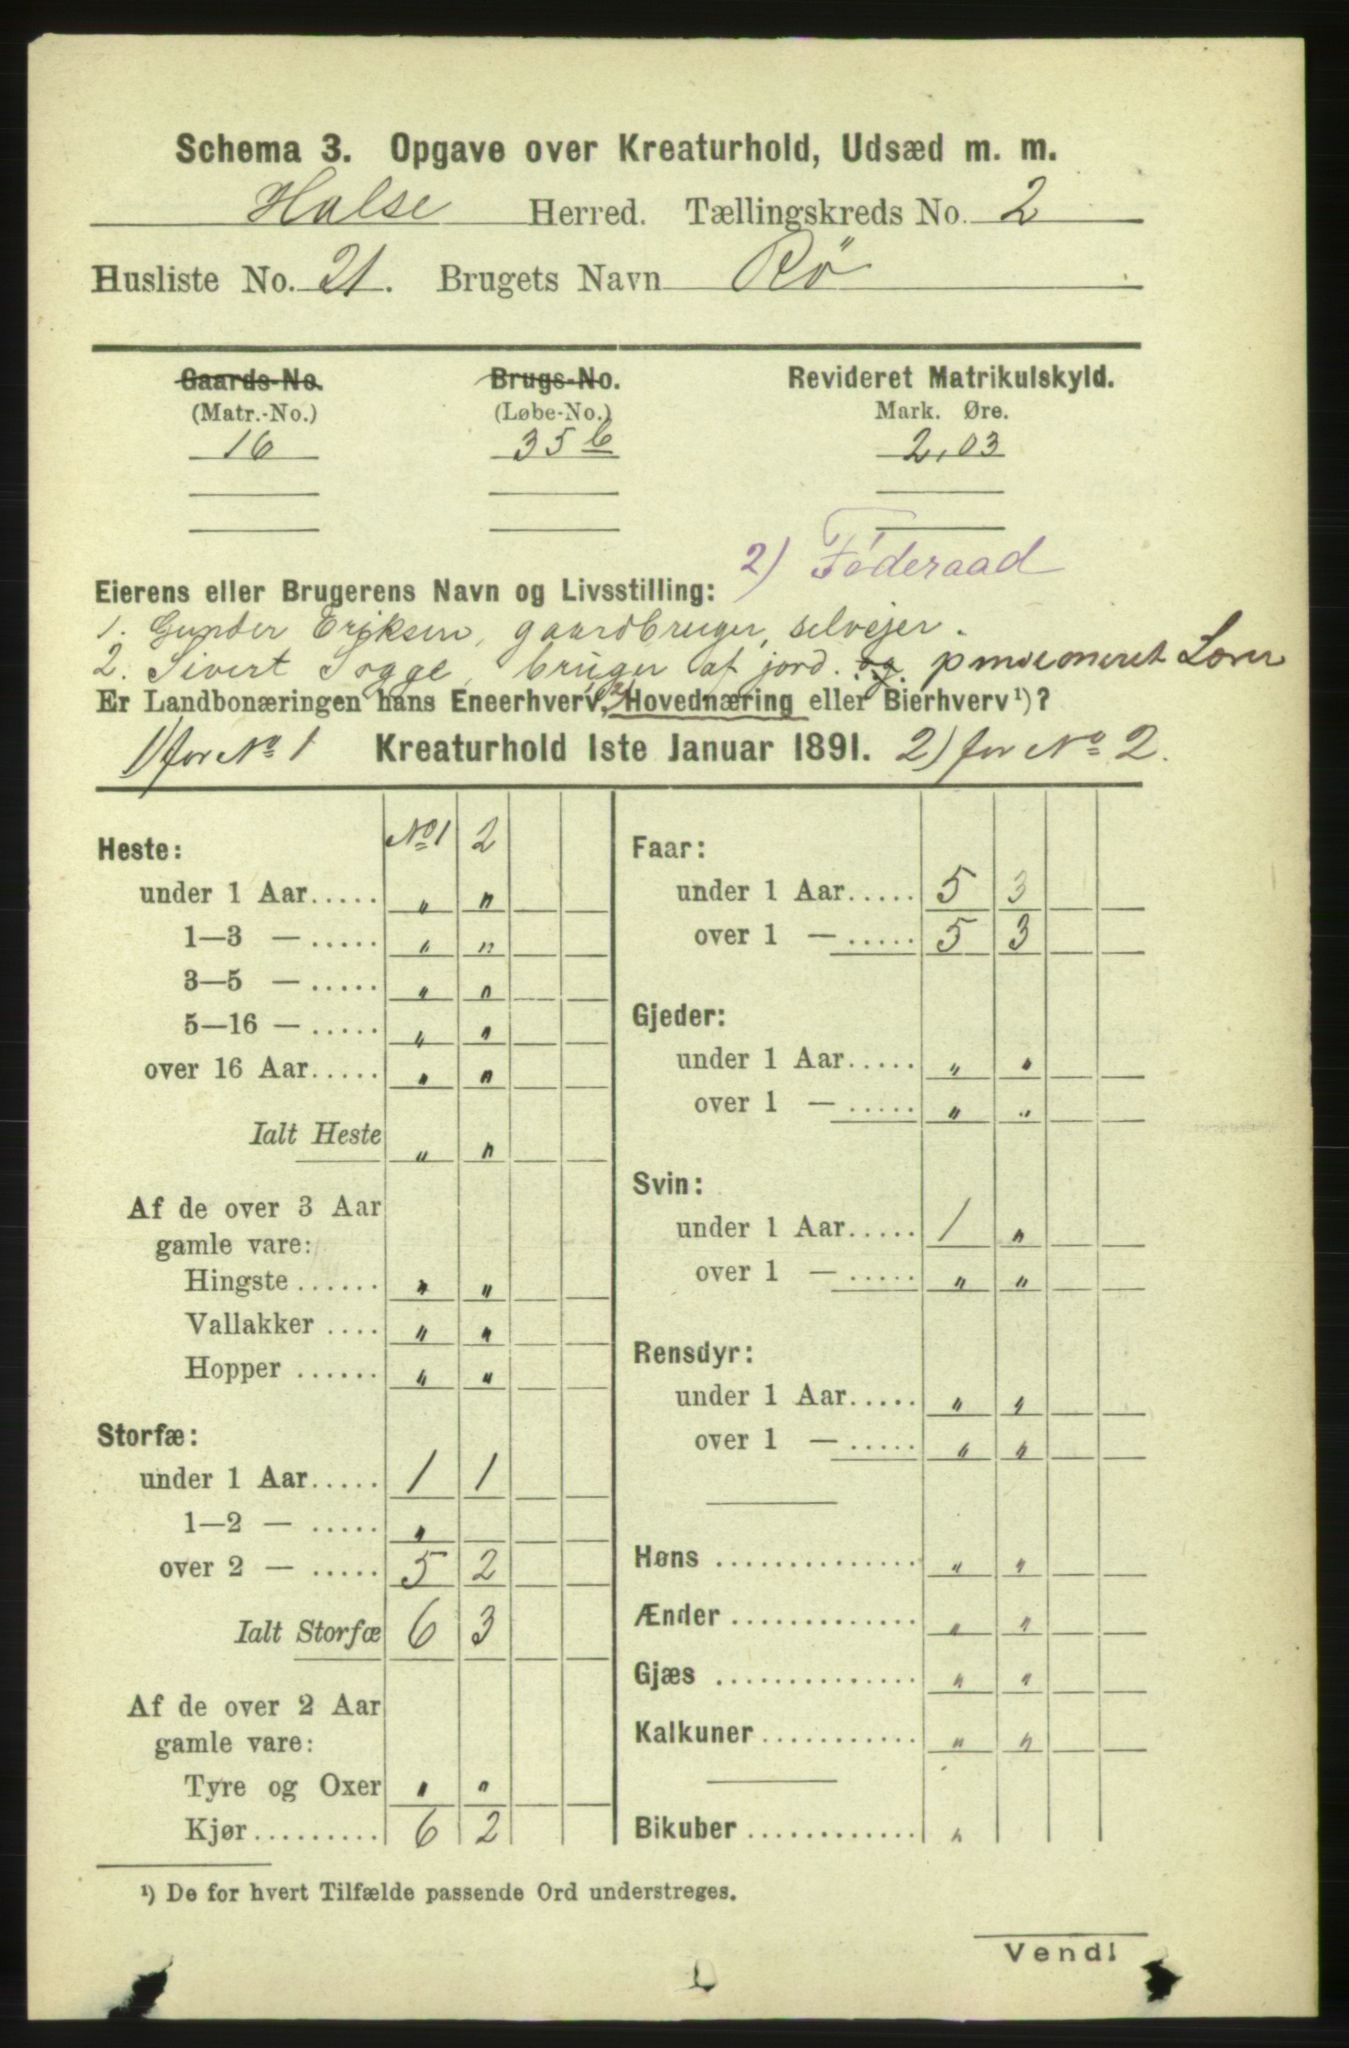 Schema 3. Opgave over Kreaturhold, Udsæd m. m.
Halse Herred. Tællingskreds No. 2
Husliste No. 21. Brugets Navn Rö
Gaards-No. Brugs-No. Revideret Matrikulskyld.
(Matr.-No.) (Løbe-No.) Mark. Øre.
16 35 b 2,03
2) Föderaad
Eierens eller Brugerens Navn og Livsstilling:
1. Gunder Eriksen, gaardbruger, selvejer.
2. Sivert Togge, bruger af jord. og. pensioneret Lærer
Er Landbonæringen hans Eneerhverv, Hovednæring eller Bierhverv¹)?
1) for No 1 Kreaturhold 1ste Januar 1891. 2) for No 2.
No 1 2
Heste:
under 1 Aar..... „ „
1—3 — ..... „ „
3—5 — ..... „ „
5—16 — ..... „ „
over 16 Aar..... „ „
Ialt Heste „ „
Af de over 3 Aar
gamle vare:
Hingste ...... „ „
Vallakker .... „ „
Hopper ...... „ „
Storfæ:
under 1 Aar..... 1 1
1—2 — ..... „
over 2 — ..... 5 2
Ialt Storfæ 6 3
Af de over 2 Aar
gamle vare:
Tyre og Oxer „ „
Kjør......... 6 2
Faar:
under 1 Aar..... 5 3
over 1 — ..... 5 3
Gjeder:
under 1 Aar..... „ „
over 1 — ..... „ „
Svin:
under 1 Aar..... 1 „
over 1 — ..... „ „
Rensdyr:
under 1 Aar..... „ „
over 1 — ..... „ „
Høns .............. „ „
Ænder ............. „ „
Gjæs .............. „ „
Kalkuner ........... „ „
Bikuber ............ „
¹) De for hvert Tilfælde passende Ord understreges.
Vend!